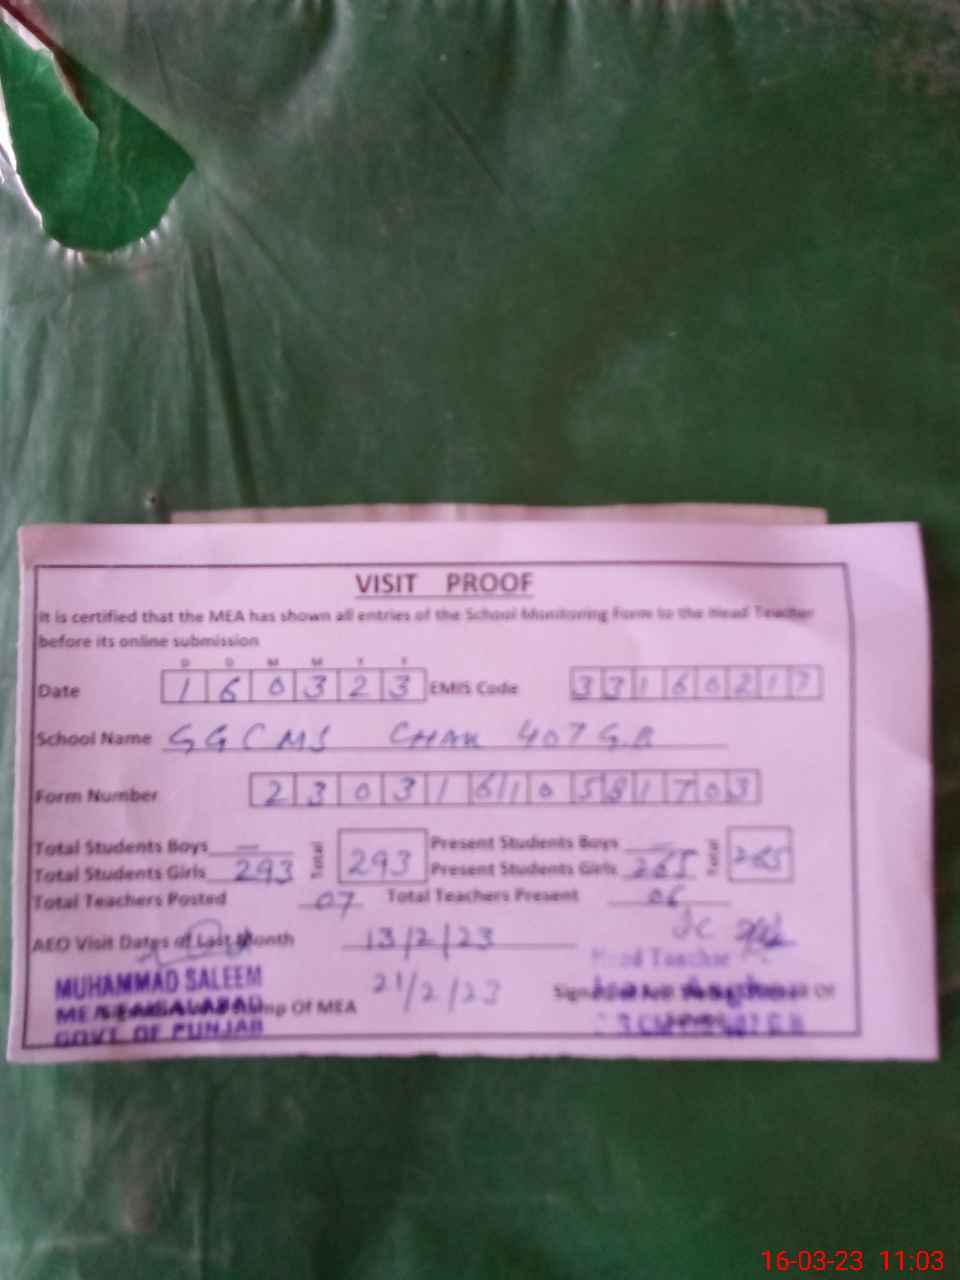 VISIT PROOF
It is certified that the MEA has shown all entries of the School Monitoring Form to the Head Teacher
before its online submission
D D M M Y Y
Date 1 6 0 3 2 3 EMIS Code 3 3 1 6 0 2 1 7
School Name GGCMS CHAK 407 G.B
Form Number 2 3 0 3 1 6 1 0 5 8 1 7 0 3
Total Students Boys — Total 293 Present Students Boys — Total 265
Total Students Girls 293 Present Students Girls 265
Total Teachers Posted 07 Total Teachers Present 06
AEO Visit Dates of Last Month 13/2/23
Head Teacher
MUHAMMAD SALEEM 21/2/23
MEA FAISALABAD Of MEA
GOVT. OF PUNJAB
16-03-23 11:03